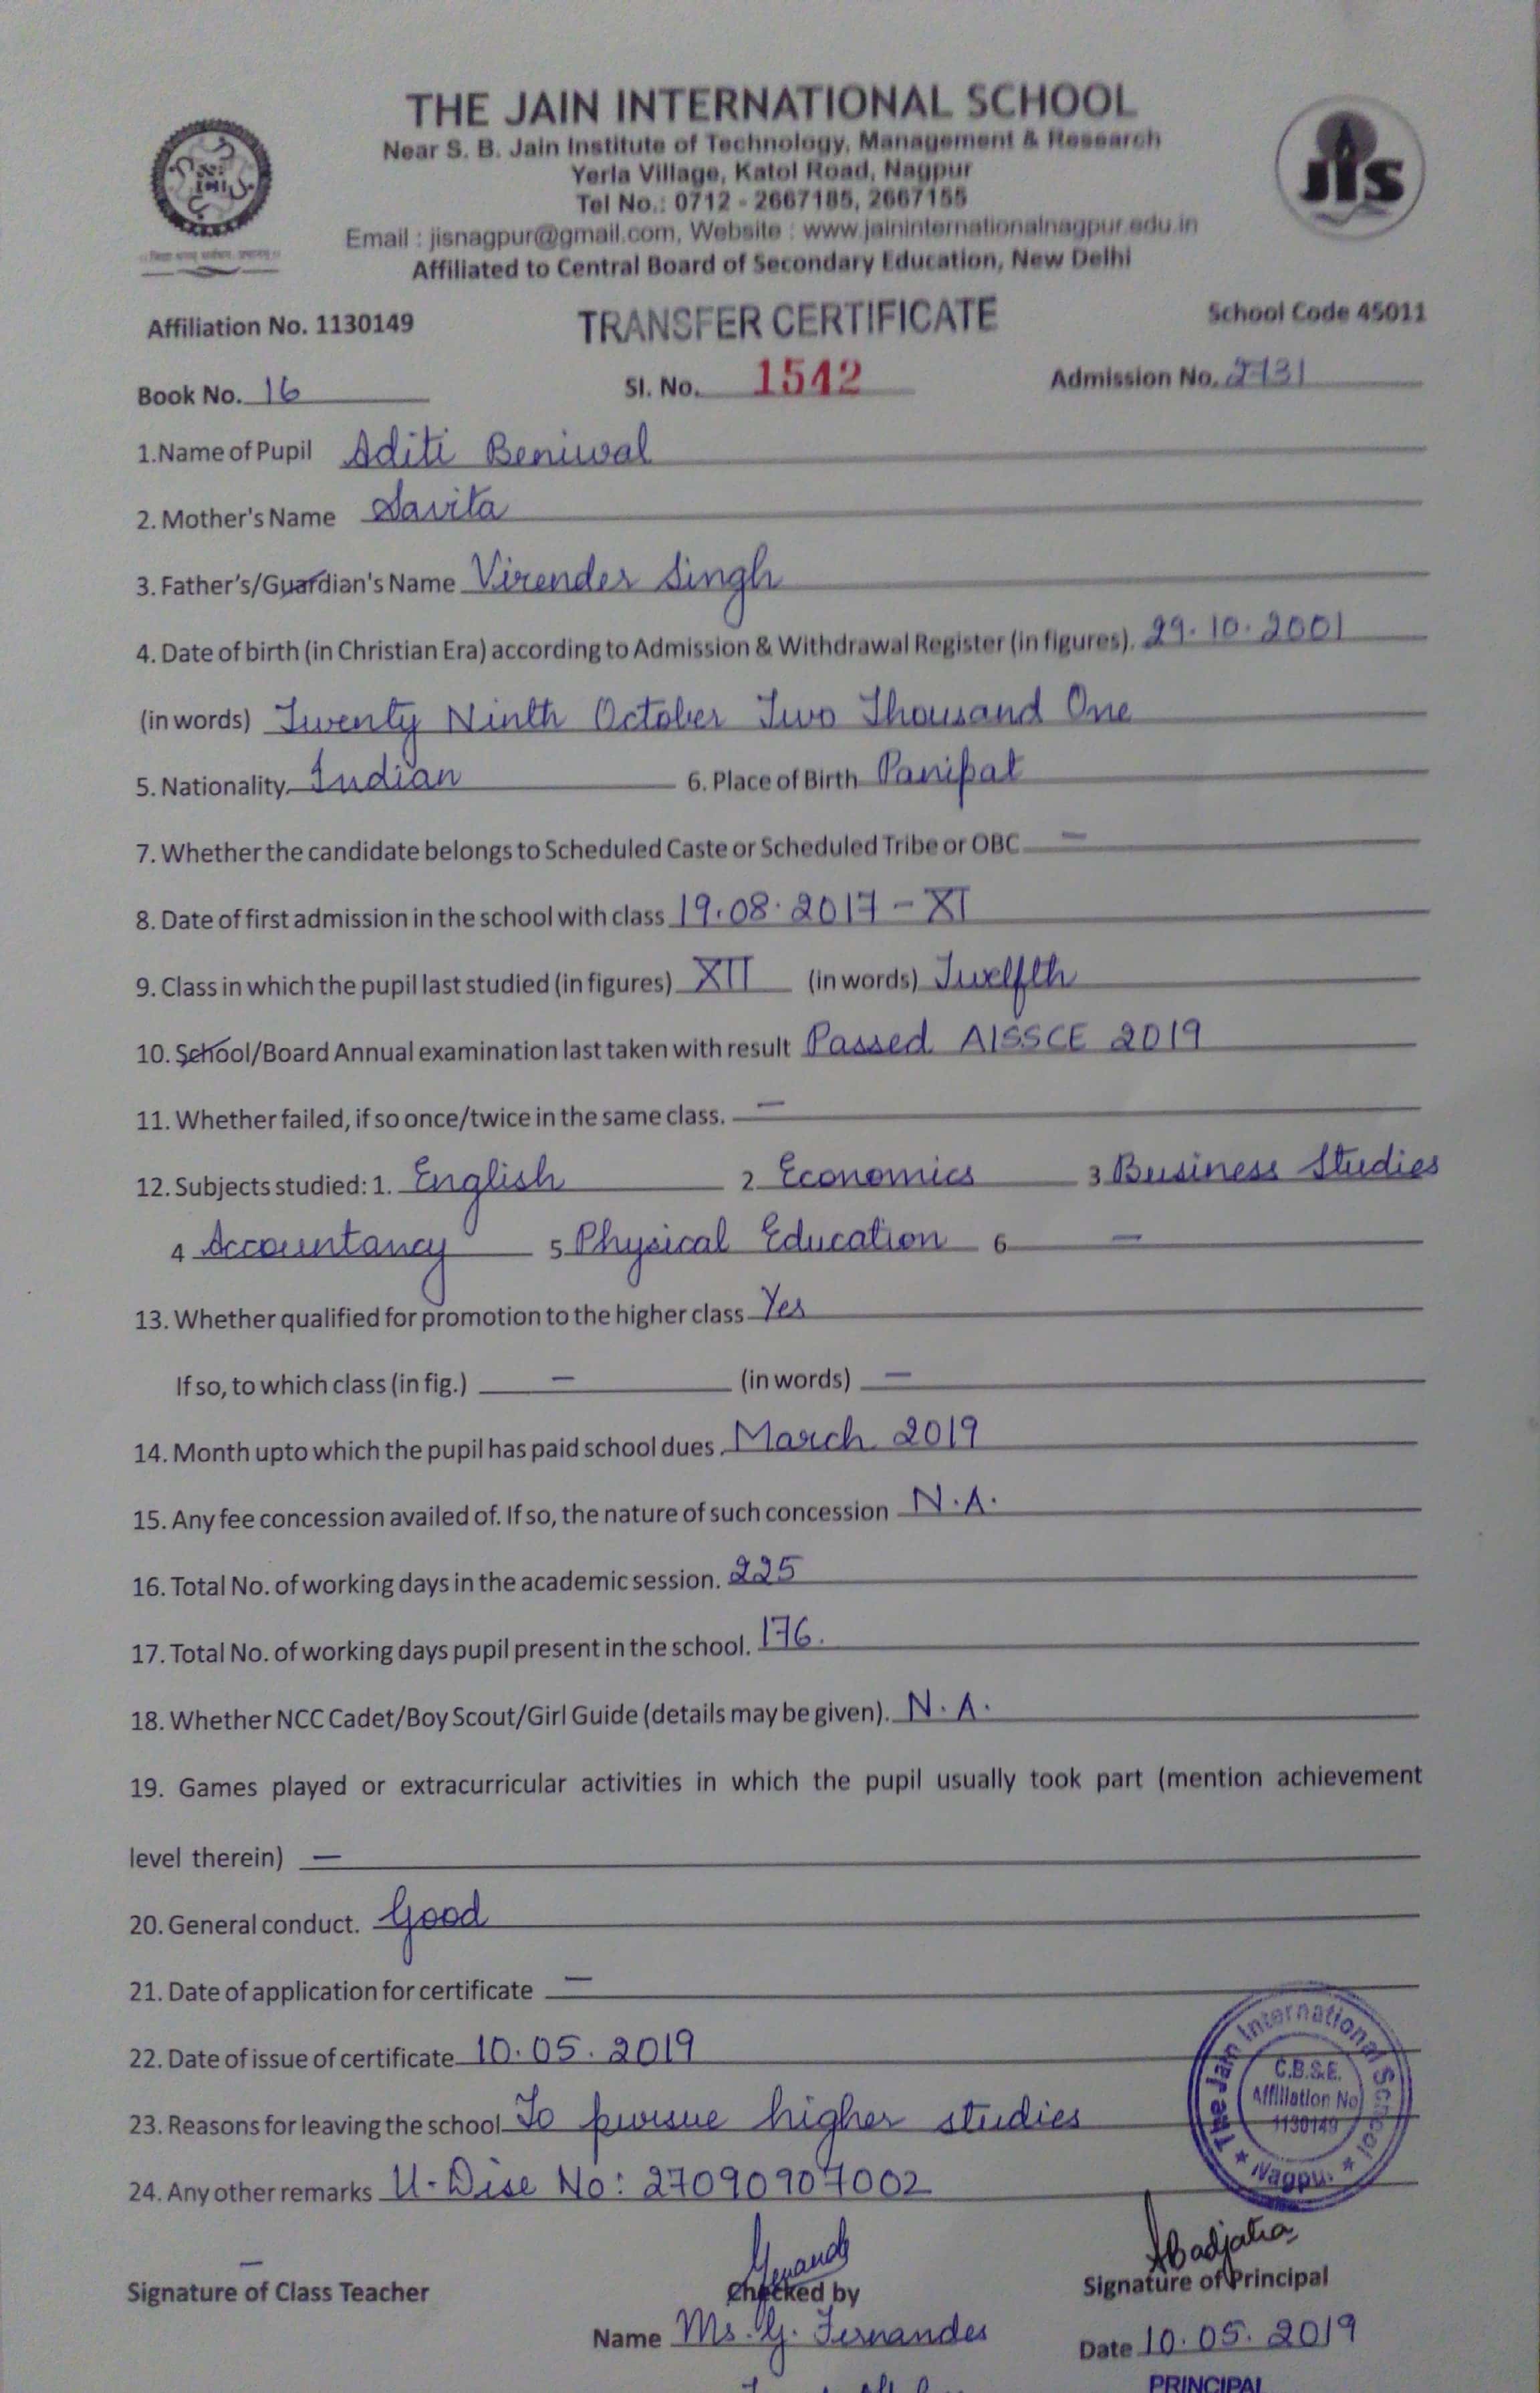 THE JAIN INTERNATIONAL SCHOOL
Near S. B. Jain Institute of Technology, Management & Research
Yerla Village, Katol Road, Nagpur
Tel No.: 0712 - 2667185, 2667155
Email : jisnagpur@gmail.com, Website : www.jaininternationalnagpur.edu.in
Affiliated to Central Board of Secondary Education, New Delhi
jis
Affiliation No. 1130149 TRANSFER CERTIFICATE School Code 45011
Book No. 16 Sl. No. 1542 Admission No. 2731
1.Name of Pupil Aditi Beniwal
2. Mother's Name Savita
3. Father's/Guardian's Name Virender Singh
4. Date of birth (in Christian Era) according to Admission & Withdrawal Register (in figures). 29.10.2001
(in words) Twenty Ninth October Two Thousand One
5. Nationality Indian 6. Place of Birth Panipat
7. Whether the candidate belongs to Scheduled Caste or Scheduled Tribe or OBC —
8. Date of first admission in the school with class 19.08.2017 - XI
9. Class in which the pupil last studied (in figures) XII (in words) Twelfth
10. School/Board Annual examination last taken with result Passed AISSCE 2019
11. Whether failed, if so once/twice in the same class. —
12. Subjects studied: 1. English 2 Economics 3 Business Studies
4 Accountancy 5 Physical Education 6 —
13. Whether qualified for promotion to the higher class Yes
If so, to which class (in fig.) — (in words) —
14. Month upto which the pupil has paid school dues. March 2019
15. Any fee concession availed of. If so, the nature of such concession N.A.
16. Total No. of working days in the academic session. 225
17. Total No. of working days pupil present in the school. 176.
18. Whether NCC Cadet/Boy Scout/Girl Guide (details may be given). N.A.
19. Games played or extracurricular activities in which the pupil usually took part (mention achievement
level therein) —
20. General conduct. Good
21. Date of application for certificate —
22. Date of issue of certificate 10.05.2019
23. Reasons for leaving the school To pursue higher studies
24. Any other remarks U-Dise No: 27090907002
The Jain International School
C.B.S.E.
Affiliation No
1130149
Nagpur
—
Signature of Class Teacher Checked by Signature of Principal
Name Ms. G. Fernandes Date 10.05.2019
PRINCIPAL